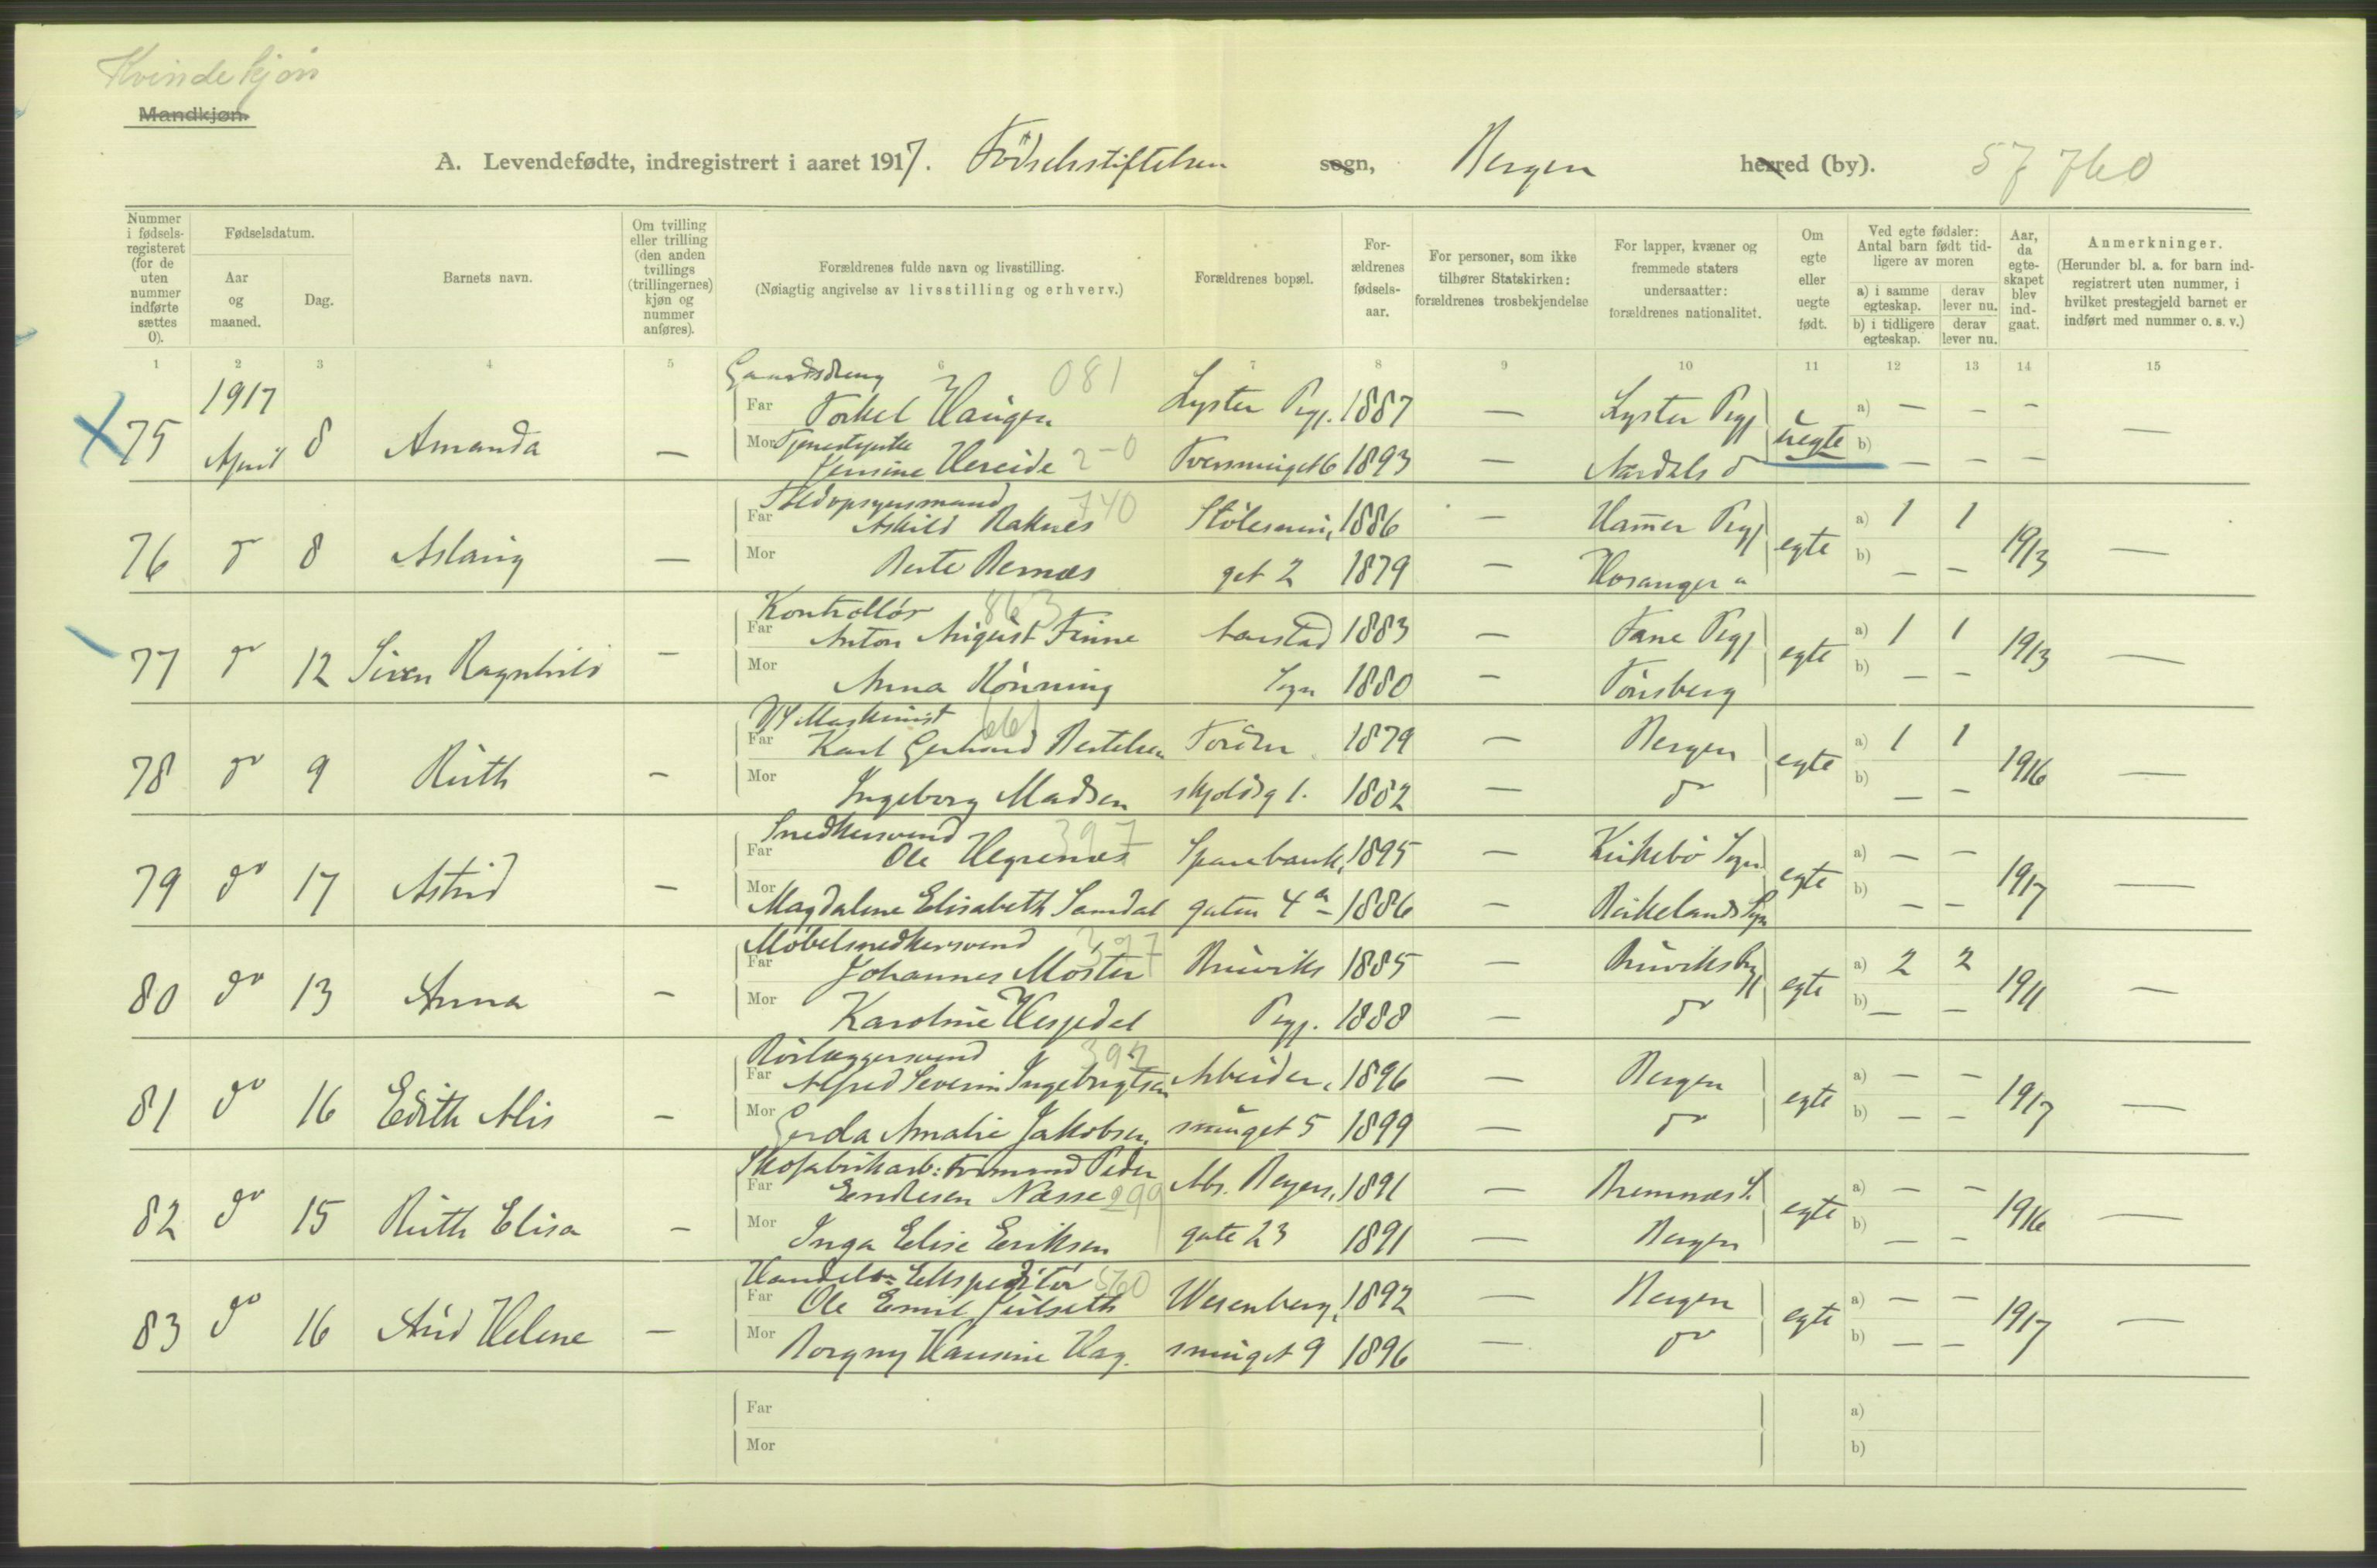 Kvindekjøn
Mandkjøn.
A. Levendefødte, indregistrert i aaret 1917. Födselsstiftelsen sogn, Bergen herred (by). 57 760
Nummer i fødsels-registeret (for de uten nummer indførte sættes 0).
Fødselsdatum.
Aar og maaned.
Dag.
Barnets navn.
Om tvilling eller trilling (den anden tvillings (trillingernes) kjøn og nummer anføres).
Forældrenes fulde navn og livsstilling.
(Nøiagtig angivelse av livsstilling og erhverv.)
Forældrenes bopæl.
For-ældrenes fødsels-aar.
For personer, som ikke tilhører Statskirken: forældrenes trosbekjendelse
For lapper, kvæner og fremmede staters undersaatter: forældrenes nationalitet.
Om egte eller uegte født.
Ved egte fødsler: Antal barn født tid-ligere av moren
a) i samme egteskap. derav lever nu.
b) i tidligere egteskap. derav lever nu.
Aar, da egte-skapet blev ind-gaat.
Anmerkninger.
(Herunder bl. a. for barn ind-registrert uten nummer, i hvilket prestegjeld barnet er indført med nummer o. s. v.)
1 2 3 4 5 6 7 8 9 10 11 12 13 14 15
1917
Gaardsdreng 081
75 April 8 Amanda — Far Torkel Haugen Lyster Pgj. 1887 — Lyster Pgj uegte a) — — —
Mor Tjenestepike Jensine Hereide 2-0 Tversmuget 6 1893 — Aardals d b) — — — —
Toldopsynsmand 740
76 do 8 Aslaug — Far Askild Raknes Stölesmu, 1886 — Hamer Pgj egte a) 1 1 1913 —
Mor Berte Bernæs get 2 1879 — Hosanger " b) — —
Kontrollör 863
77 do 12 Siven Ragnhild — Far Anton August Finne Aarstad 1883 — Fane Pgj egte a) 1 1 1913 —
Mor Anna Rönning Sogn 1880 — Tönsberg b) — —
D/S Maskinist 661
78 do 9 Ruth — Far Karl Gerhard Bertelsen Torden 1879 — Bergen egte a) 1 1 1916 —
Mor Ingeborg Madsen skjoldsg 1. 1882 — do b) — —
Snedkersvend 397
79 do 17 Astrid — Far Ole Hegrenæs Sparebank, 1895 — Kirkebö Sogn egte a) — — 1917 —
Mor Magdalene Elisabeth Samdal gaten 4 a 1886 — Birkelands Sogn b) — —
Möbelsnedkersvend 397
80 do 13 Anna — Far Johannes Möster Bruviks 1885 — Bruviks Pgj egte a) 2 2 1911 —
Mor Karoline Hesjedal Pgj. 1888 — do b) — —
Rörlæggersvend 397
81 do 16 Edith Alis — Far Alfred Severin Ingebrigtsen Arbeider, 1896 — Bergen egte a) — — 1917 —
Mor Gerda Amalie Jakobsen smuget 5 1899 — do b) — —
Skofabrikarb: Formand Peder
82 do 15 Ruth Elisa — Far Endresen Næsse 299 Abs. Beyers, 1891 — Bremnæs S. egte a) — — 1916 —
Mor Inga Elise Eriksen gate 23 1891 — Bergen b) — —
Handels-Ekspeditör 560
83 do 16 Aud Helene — Far Ole Emil Juilseth Wesenberg, 1892 — Bergen egte a) — — 1917 —
Mor Borgny Hansine Hag. smuget 9 1896 — do b) — —
Far a)
Mor b)